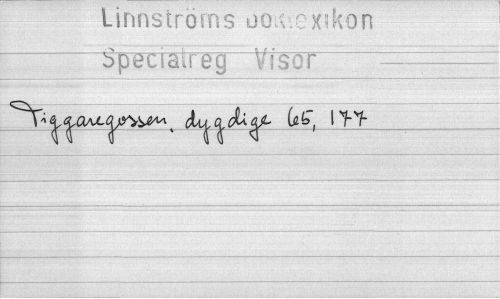 Linnströms Boklexikon
Specialreg Visor
Tiggaregossen, dygdige 65, 177